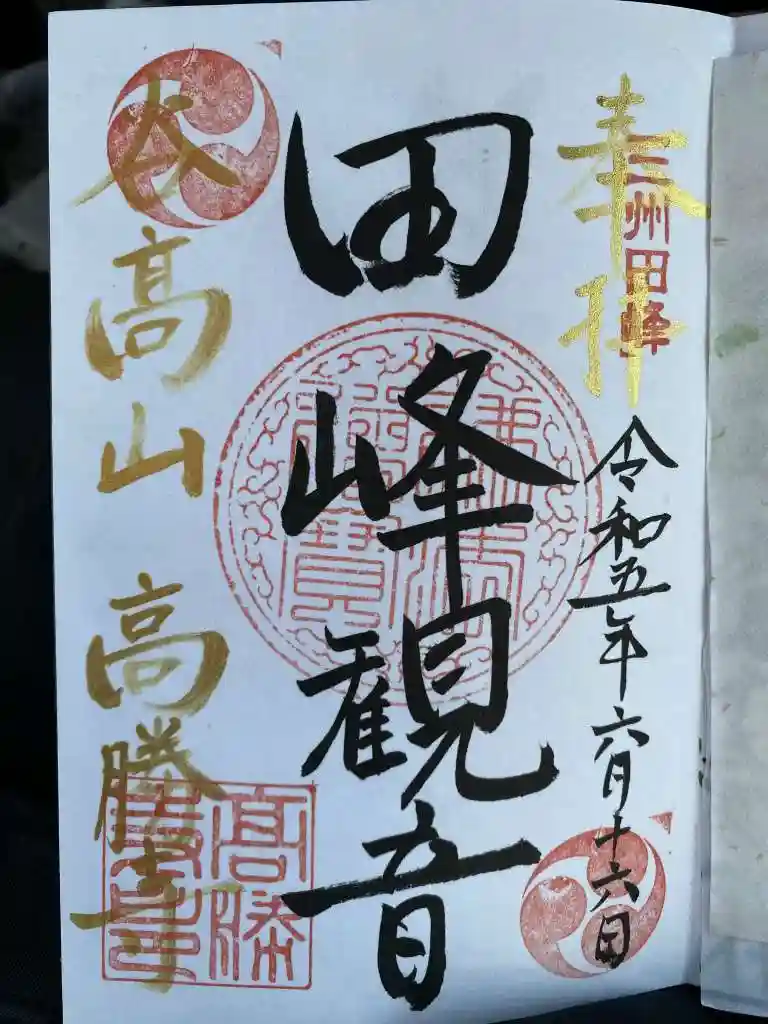 奉拝
三州田峰
令和五年六月十六日
田峰観音
谷高山 高勝寺
高勝寺印